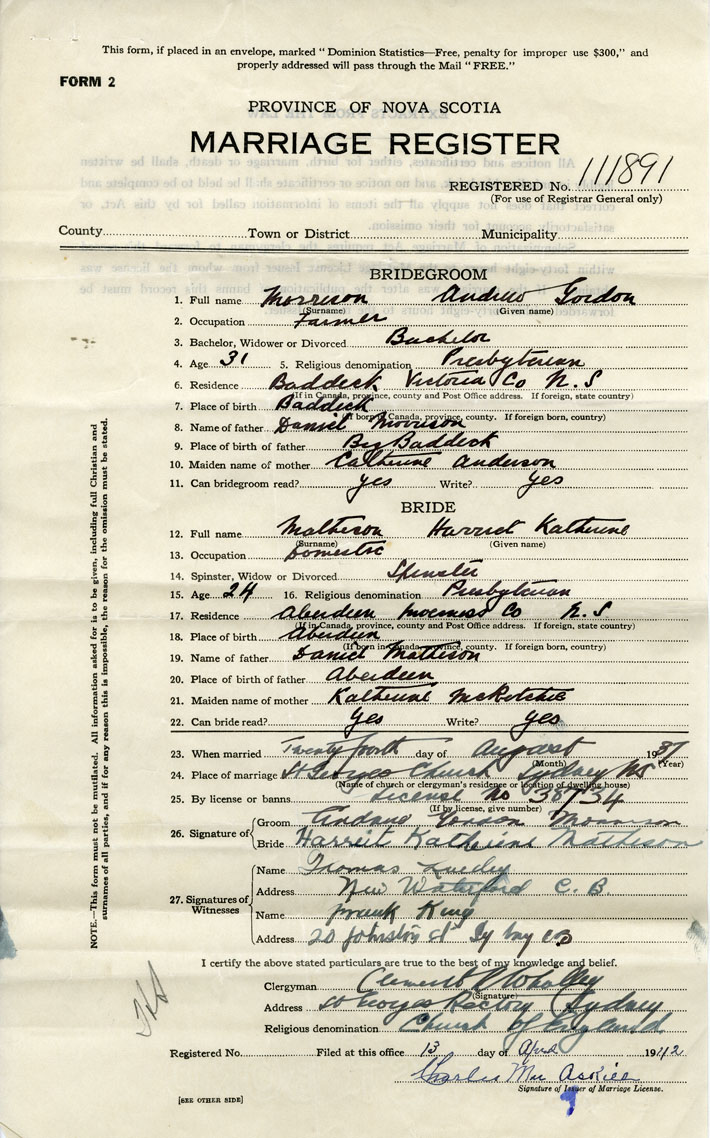 This form, if placed in an envelope, marked "Dominion Statistics—Free, penalty for improper use $300," and
properly addressed will pass through the Mail "FREE."
FORM 2
PROVINCE OF NOVA SCOTIA
MARRIAGE REGISTER
REGISTERED No. 111891
(For use of Registrar General only)
County Town or District Municipality
BRIDEGROOM
1. Full name Morrison Andrew Gordon
(Surname) (Given name)
2. Occupation Farmer
3. Bachelor, Widower or Divorced Bachelor
4. Age 31 5. Religious denomination Presbyterian
6. Residence Baddeck Victoria Co N.S
(If in Canada, province, county and Post Office address. If foreign, state country)
7. Place of birth Baddeck
(If born in Canada, province, county. If foreign born, country)
8. Name of father Daniel Morrison
9. Place of birth of father Big Baddeck
10. Maiden name of mother Catherine Anderson
11. Can bridegroom read? yes Write? yes
BRIDE
12. Full name Matheson Harriet Katherine
(Surname) (Given name)
13. Occupation Domestic
14. Spinster, Widow or Divorced Spinster
15. Age 24 16. Religious denomination Presbyterian
17. Residence Aberdeen Inverness Co N.S
(If in Canada, province, county and Post Office address. If foreign, state country)
18. Place of birth Aberdeen
(If born in Canada, province, county. If foreign born, country)
19. Name of father Daniel Matheson
20. Place of birth of father Aberdeen
21. Maiden name of mother Katherine McRitchie
22. Can bride read? yes Write? yes
23. When married Twenty fourth day of August 1937
(Month) (Year)
24. Place of marriage St Georges Church Sydney NS
(Name of church or clergyman's residence or location of dwelling house)
25. By license or banns License no
(If by license, give number)
26. Signature of Groom Morrison
Bride Harriet Katherine Matheson
27. Signatures of Witnesses
Name Thomas
Address New Waterford C. B.
Name Frank King
Address 20 Johnston St
I certify the above stated particulars are true to the best of my knowledge and belief.
Clergyman
(Signature)
Address St Georges Rectory Sydney
Religious denomination Church of England
Registered No. Filed at this office 13 day of April 1942
Charles MacAskill
Signature of Issuer of Marriage License.
[SEE OTHER SIDE]
NOTE.—This form must not be mutilated. All information asked for is to be given, including full Christian and
surnames of all parties, and if for any reason this is impossible, the reason for the omission must be stated.